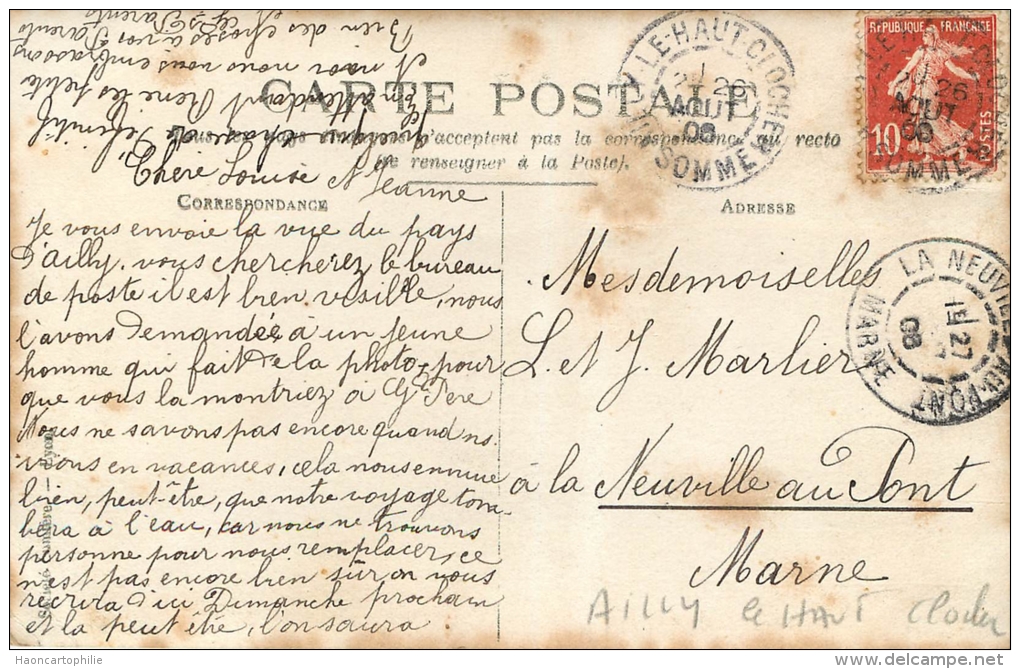 CARTE POSTALE
Tous les pays étrangers n'acceptent pas la correspondance au recto
se renseigner à la Poste
CORRESPONDANCE
Chère Louise et Jeanne
Je vous envoie la vue du pays
d'ailly, vous chercherez le bureau
de poste il est bien visible, nous
l'avons demandée à un jeune
homme qui fait de la photo, pour
que vous la montriez à Gd Père
Nous ne savons pas encore quand ns
irons en vacances, cela nous ennuie
bien, peut-être, que notre voyage tom-
bera à l'eau, car nous ne trouvons
personne pour nous remplacer, ce
n'est pas encore bien sûr, on vous
récrira d'ici Dimanche prochain
et là peut être, l'on saura
En attendant René les petits
et moi nous vous embrassons
Bien des choses à vos Parents
et Gds Parents
ADRESSE
Mesdemoiselles
L. et J. Marlier
à la Neuville au Pont
Marne
AILLY le HAUT Clocher
AILLY-LE-HAUT CLOCHER
26
AOUT
08
SOMME
REPUBLIQUE FRANÇAISE
10
POSTES
26
AOUT
08
SOMME
LA NEUVILLE-AU-PONT
15
27
08
MARNE
Haoncartophilie